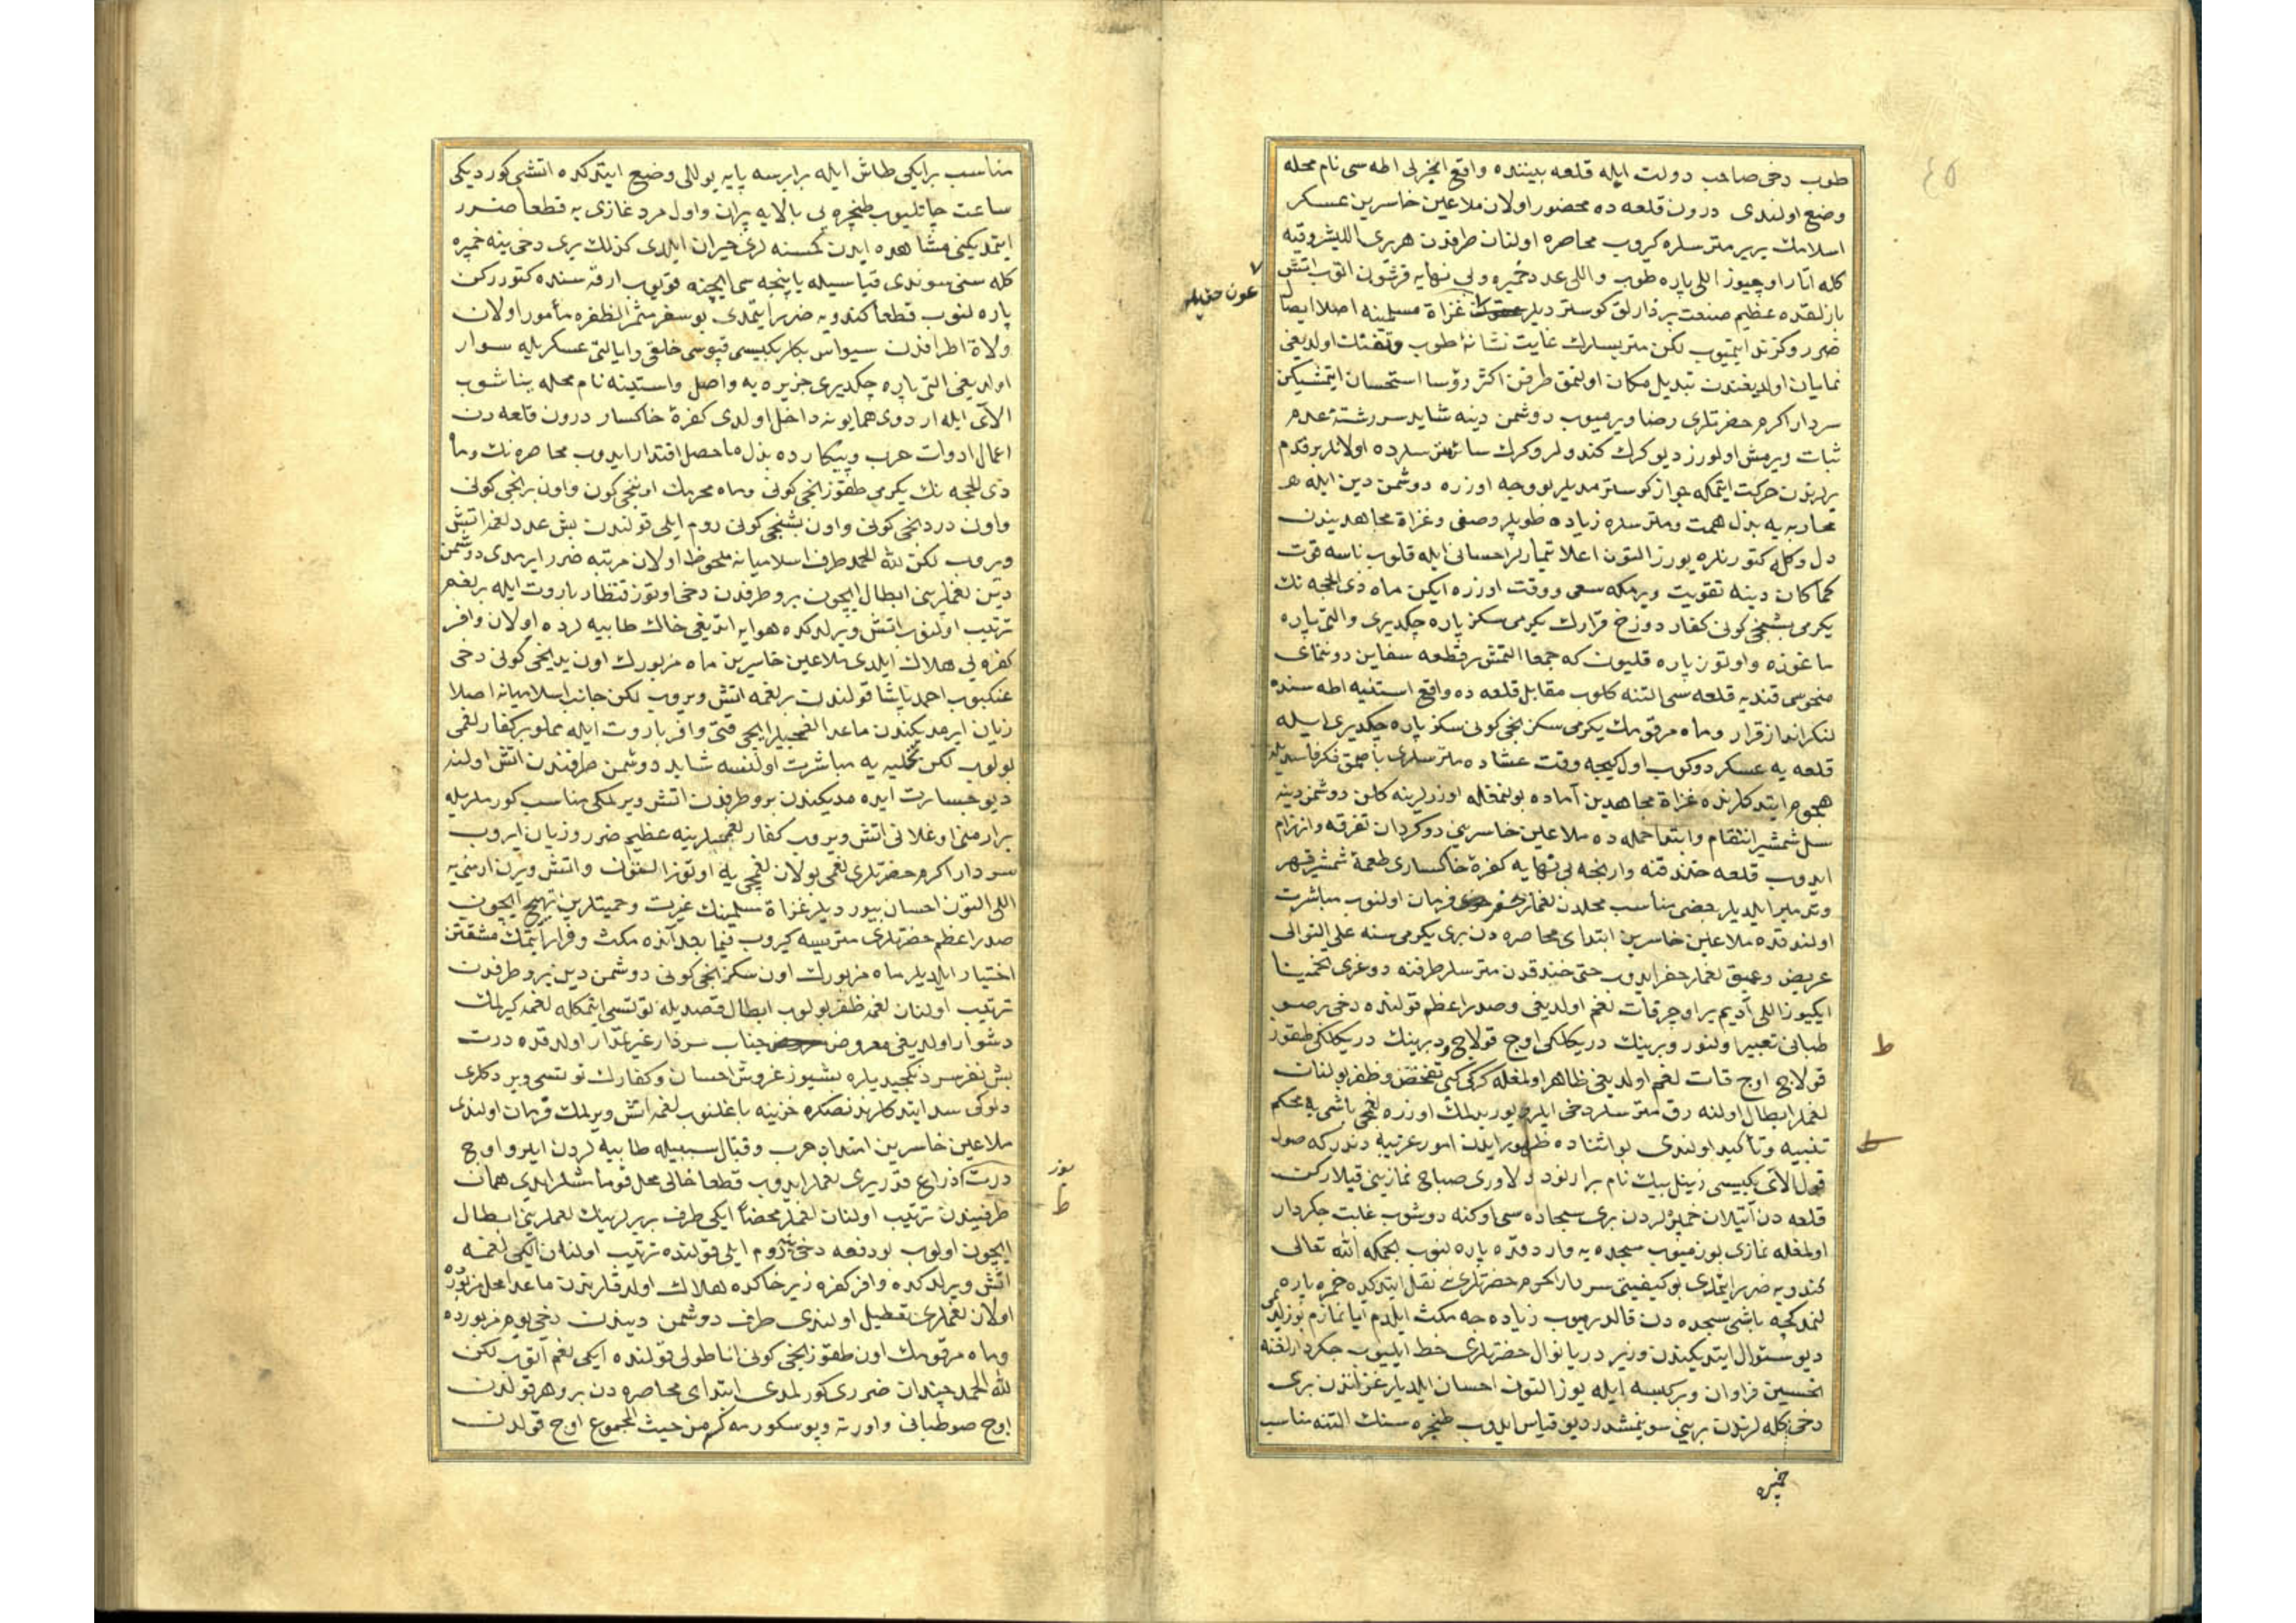 ٤٥
طوب دخی صاحب دولت ایله قلعه بیننده واقع انجیرلی اطه سی نام محله
وضع اولندی درون قلعه ده محضور اولان ملاعین خاسرین عسکر
اسلامك یریر متر سلره کیروب محاصره اولنان طرفدن هر بری اللیشر وقیه
کله اتار اوچیوز اللی پاره طوب و اللی عدد خمپره و بی نهایه فرشتون اتوب اتش
بازلقده عظیم صنعت بردارلق کوستردیلر غزاة مسلمینه اصلا ایصال
عون حقیله
ضرر و کزند ایتمیوب لکن متریسلرك غایت نشانۀ طوب و تفنك اولدیغی
نمایان اولدیغندن تبدیل مکان اولنمق طرفن اکثر رؤسا استحسان ایتمشیکن
سردار اکرم حضرتلری رضا ویرمیوب دوشمن دینه شاید سررشتۀ عدم
ثبات ویرمش اولورز دیو کرك کندولر و کرك سائر متر سلرده اولانلر برقدم
یرلرندن حرکت ایتمکه جواز کوسترمدیلر بو وجه اوزره دوشمن دین ایله
محاربه یه بذل همت و متر سلره زیاده طوپلر وصفی و غزاة مجاهدیندن
دل و کله کتورنلره یوزر التون اعلا تیمارلر احسانی ایله قلوب ناسه قوت
کما کان دینه تقویت ویرمکه سعی و وقت اوزره ایکن ماه ذی الحجه نك
یکرمی بشنجی کونی کفار دوزخ قرارك یکرمی سکز پاره چکدیری و التی پاره
ماغوزه و اوتوز پاره قلیون که جمعا التمش قطعه سفاین دوننمای
منحوسی قندیه قلعه سی التنه کلوب مقابل قلعه ده واقع استنیه اطه سنده
لنکرانداز قرار و ماه مرقومك یکرمی سکزنجی کونی سکز پاره چکدیری ایله
قلعه یه عسکر دوکوب اول کیجه وقت عشاده متر سلری باصمق فکر فاسدیله
هجوم ایتدکلرنده غزاة مجاهدین آماده بولنمقله اوزرلرینه کلن دوشمن دینه
سل شمشیر انتقام و ابتدا حمله ده ملاعین خاسرینی دوکردان تفرقه و انهزام
ایدوب قلعه خندقنه وارنجه بی نهایه کفرۀ خاکساری طعمۀ شمشیر قهر
و تدمیر ایلدیلر بعضی مناسب محلدن لغملر حفر فرمان اولنوب مباشرت
اولندقده ملاعین خاسرین ابتدای محاصره دن بری یکرمی سنه علی التوالی
عریض و عمیق لغملر حفر ایدوب حتی خندقدن متر سلر طرفنه دوغری تخمینا
ایکیوز اللی آدیم یر اوچر قات لغم اولدیغی و صدر اعظم قولنده دخی بر صو
طبانی تعبیر اولنور و برینك درینلکی اوچ قولاج و برینك درینلکی طقوز
ط
قولاج اوچ قات لغم اولدیغی ظاهر اولمغله کرکی کبی تفحص و ظفر بولنان
لغملر ابطال اولنه رق متر سلر دخی ایلرو یوریدلمك اوزره لغمجی باشی یه محکم
تنبیه و تأکید اولندی بو اثناده ظهور ایلدن امور غریبه دندر که صول
قول الای بکیسی زینل بیك نام بر ارنود دلاوری صباح نمازینی قیلارکن
قلعه دن آتیلان خمپره لردن بری سجاده سی اوکنه دوشوب غایت جکردار
اولمغله نمازی بوزمیوب سجده یه واردقده پاره لنوب بحکمه الله تعالی
کندویه ضرر ایتمدی بو کیفیتی سردار اکرم حضرتلری نقل ایتدکده خمپره پاره
لنمدکجه باشی سجده دن قالدرمیوب زیاده جه مکث ایلدم آیا نمازم بوزلدیمی
دیو سئوال ایتدیکندن وزیر دریا نوال حضرتلری حظ ایلیوب جکردارلغنه
تحسین فراوان و بر کیسه ایله یوز التون احسان ایلدیلر غزاتندن بری
دخی کله لرندن برینی سوینمشدر دیو قیاس ایدوب طنجره سنك التنه مناسب
خمپره
مناسب بر ایکی طاش ایله برابرسه پایه یوللی وضع ایتدکده اتشی کوردیکی
ساعت چاتلیوب طنجره یی بالایه پران و اول مرد غازی یه قطعا ضرر
ایتمدیکنی مشاهده ایدن کمسنه لری حیران ایلدی کذلك بری دخی ینه خمپره
کله سنی سوندی قیاسیله یاپنجه سی ایچنه قویوب ارقه سنده کتوررکن
پاره لنوب قطعا کندویه ضرر ایتمدی بو سفر مثمر الظفره مأمور اولان
ولاة اطرافدن سیواس بکلربکیسی قپوسی خلقی و ایالتی عسکریله سوار
اولدیغی التی پاره چکدیری جزیره یه واصل و استینه نام محله یناشوب
الای ایله اردوی همایونه داخل اولدی کفرۀ خاکسار درون قلعه دن
اعمال ادوات حرب و پیکارده بذل ماحصل اقتدار ایدوب محاصره نك و ماه
ذی الحجه نك یکرمی طقوزنجی کونی و ماه محرمك اوننجی کون و اون برنجی کونی
و اون دردنجی کونی و اون بشنجی کونی روم ایلی قولندن بش عدد لغمه اتش
ویروب لکن لله الحمد طرف اسلامیانه ملحوظ اولان مرتبه ضرر ایرمدی دوشمن
دین لغملرینی ابطال ایچون برو طرفدن دخی اوتوز قنطار باروت ایله بر لغم
ترتیب اولنوب اتش ویرلدکده هوایه اتدیغی خاك طابیه لرده اولان وافر
کفره یی هلاك ایلدی ملاعین خاسرین ماه مزبورك اون یدنجی کونی دخی
عنکبوب احمد پاشا قولندن بر لغمه اتش ویروب لکن جانب اسلامیانه اصلا
زیان ایرمدیکندن ماعدا لغمجیلر ایچی قتی وافر باروت ایله مملو بر کفار لغمی
بولوب لکن تخلیه یه مباشرت اولنسه شاید دوشمن طرفندن اتش اولنه
دیو جسارت ایده مدیکندن برو طرفدن اتش ویرلمکی مناسب کورملریله
بر ارمنی اوغلانی اتش ویروب کفار لغمجیلرینه عظیم ضرر و زیان ایروب
سردار اکرم حضرتلری لغمی بولان لغمجی یه اوتوز التون و اتش ویرن ارمنی یه
اللی التون احسان بیوردیلر غزاة مسلمینك غیرت و حمیتلرین تهییج ایچون
صدر اعظم حضرتلری متریسه کیروب فیما بعد آنده مکث و قرار ایتمك مشقتن
اختیار ایلدیلر ماه مزبورك اون سکزنجی کونی دوشمن دین برو طرفدن
ترتیب اولنان لغمه ظفر بولوب ابطال قصدیله توتسی ایتمکله لغمه کیرلمك
دشوار اولدیغی معروض جناب سردار غیر غدار اولدقده درت
بش نفر سردنکچدیلره بشیوز غروش احسان و کفارك توتسی ویردکلری
دلوکی سد ایتدکلرندنصکره خزینه باغلنوب لغمه اتش ویرلمك فرمان اولندی
ملاعین خاسرین امتداد حرب و قتال سببیله طابیه لردن ایلرو اوچ
درت ذراع قدر یری لغملر ایدوب قطعا خالی محل قومامشلر ایدی همان
یوز
ط
طرفیندن ترتیب اولنان لغملر محضا ایکی طرف بربرلرینك لغملرینی ابطال
ایچون اولوب بو دفعه دخی ینه روم ایلی قولنده ترتیب اولنان ایکی لغمه
اتش ویرلدکده وافر کفره زیر خاکده هلاك اولدقلرندن ماعدا محل مزبورده
اولان لغملری تعطیل اولندی طرف دوشمن دیندن دخی یوم مزبورده
و ماه مرقومك اون طقوزنجی کونی اناطولی قولنده ایکی لغم آتوب لکن
لله الحمد چندان ضرری کورلمدی ابتدای محاصره دن برو هر قولدن
اوچ صو طبانی و اورته و یوسکورمه کم من حیث المجموع اوچ قولدن